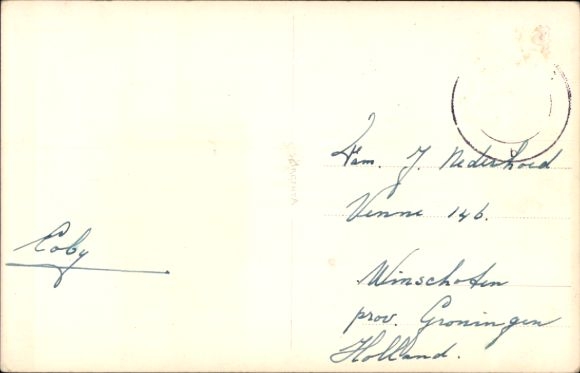 Coby
Fam. J. Nederhoed
Venne 146.
Winschoten
prov. Groningen
Holland.